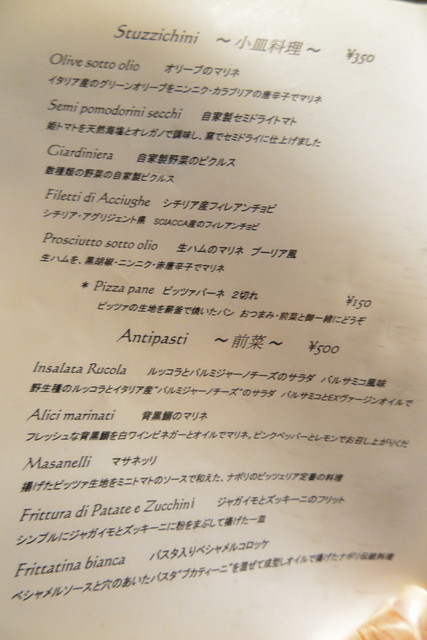 Stuzzichini ～小皿料理～ ¥350
Olive sotto olio オリーブのマリネ
イタリア産のグリーンオリーブをニンニク・カラブリアの唐辛子でマリネ
Semi pomodorini secchi 自家製セミドライトマト
姫トマトを天然海塩とオレガノで調味し、窯でセミドライに仕上げました
Giardiniera 自家製野菜のピクルス
数種類の野菜の自家製ピクルス
Filetti di Acciughe シチリア産フィレアンチョビ
シチリア・アグリジェント県 SCIACCA産のフィレアンチョビ
Prosciutto sotto olio 生ハムのマリネ プーリア風
生ハムを、黒胡椒・ニンニク・赤唐辛子でマリネ
* Pizza pane ピッツァパーネ 2切れ ¥150
ピッツァの生地を薪釜で焼いたパン おつまみ・前菜と御一緒にどうぞ
Antipasti ～前菜～ ¥500
Insalata Rucola ルッコラとパルミジャーノチーズのサラダ バルサミコ風味
野生種のルッコラとイタリア産"パルミジャーノチーズ"のサラダ バルサミコとEXヴァージンオイルで
Alici marinati 背黒鰯のマリネ
フレッシュな背黒鰯を白ワインビネガーとオイルでマリネ。ピンクペッパーとレモンでお召し上がりくだ
Masanelli マサネッリ
揚げたピッツァ生地をミニトマトのソースで和えた、ナポリのピッツェリア定番の料理
Frittura di Patate e Zucchini ジャガイモとズッキーニのフリット
シンプルにジャガイモとズッキーニに粉をまぶして揚げた一皿
Frittatina bianca パスタ入りベシャメルコロッケ
ベシャメルソースと穴のあいたパスタ"ブカティーニ"を混ぜて成型しオイルで揚げたナポリ伝統料理